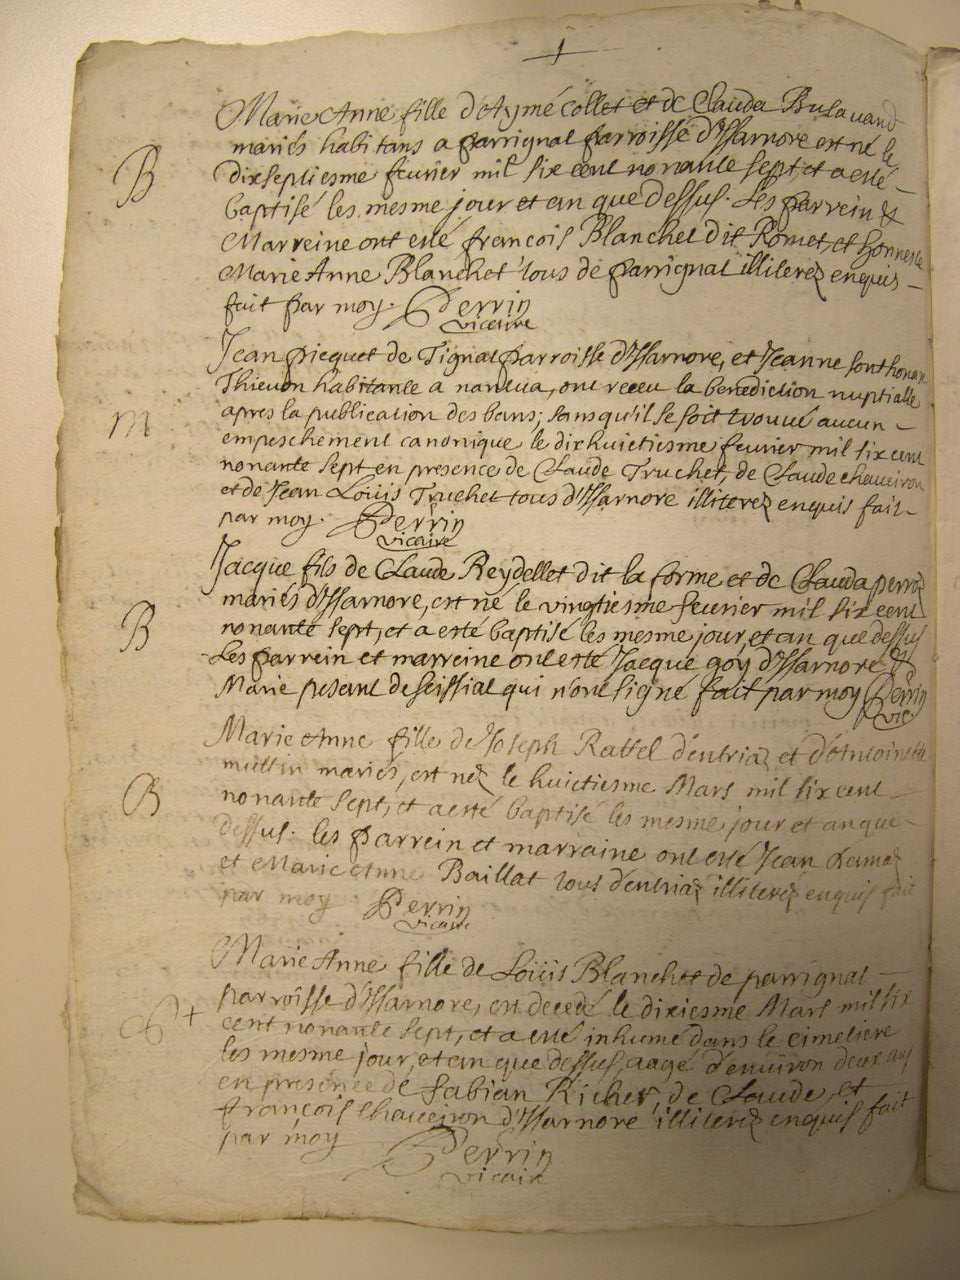 Marie Anne fille d'Aymé Collet et de Clauda Bulavand
mariés habitans a parrignal parroisse d'Issarnore est né le
dixseptiesme feuvier mil six cent nonante sept, et a esté
B
baptisé les mesme jour et an que dessus. Les parrein &
Marreine ont esté françois Blanchet dit Romet, et honneste
Marie Anne Blanchet tous de parrignal illiterez enquis
fait par moy. Perrin
vicaire
Jean picquet de Tignat parroisse d'Issarnore, et Jeanne
Thievon habitante a nantua, ont receu la benediction nuptialle
M
apres la publication des bans; sans qu'il se soit trouué aucun
empeschement canonique le dixhuictiesme feuvrier mil six cent
nonante sept en presence de Claude Truchet, de Claude chaueiron
et de Jean Loüis Truchet tous d'Issarnore illiterez enquis fait
par moy. Perrin
vicaire
Jacque fils de Claude Reydellet dit la forme et de Clauda
mariés d'Issarnore, est né le vingtiesme feuvrier mil six cent
B
nonante sept, et a esté baptisé les mesme jour, et an que dessus
Les parrein et marreine ont esté Jacque goy d'Issarnore &
Marie pesant de seissiat qui n'ont signé fait par moy Perrin
vic.
Marie Anne fille de Joseph Rattel d'entriaz et d'Antoinette
mariés, est nez le huictiesme Mars mil six cent
B
nonante sept, et a esté baptisé les mesme jour et an que
dessus. les parrein et marraine ont esté Jean
et Marie Anne Baillat tous d'entriaz illiterez enquis fait
par moy Perrin
vicaire
Marie Anne fille de Loüis Blanchet de parrignal
parroisse d'Issarnore, est decedé le dixiesme Mars mil six
+
cent nonante sept, et a esté inhumé dans le cimetiere
les mesme jour, et an que dessus, aagé d'enuiron deux ans
en presence de fabian Richer, de Claude, et
françois chaueiron d'Issarnore illiterez enquis fait
par moy
Perrin
vicaire